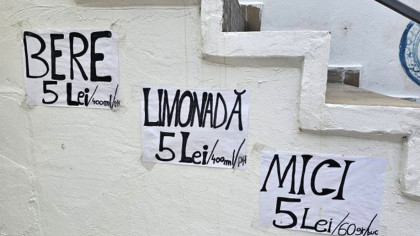 BERE
5 Lei/400ml/PH
LIMONADĂ
5 Lei/400ml/PH
MICI
5 Lei/60gr/buc